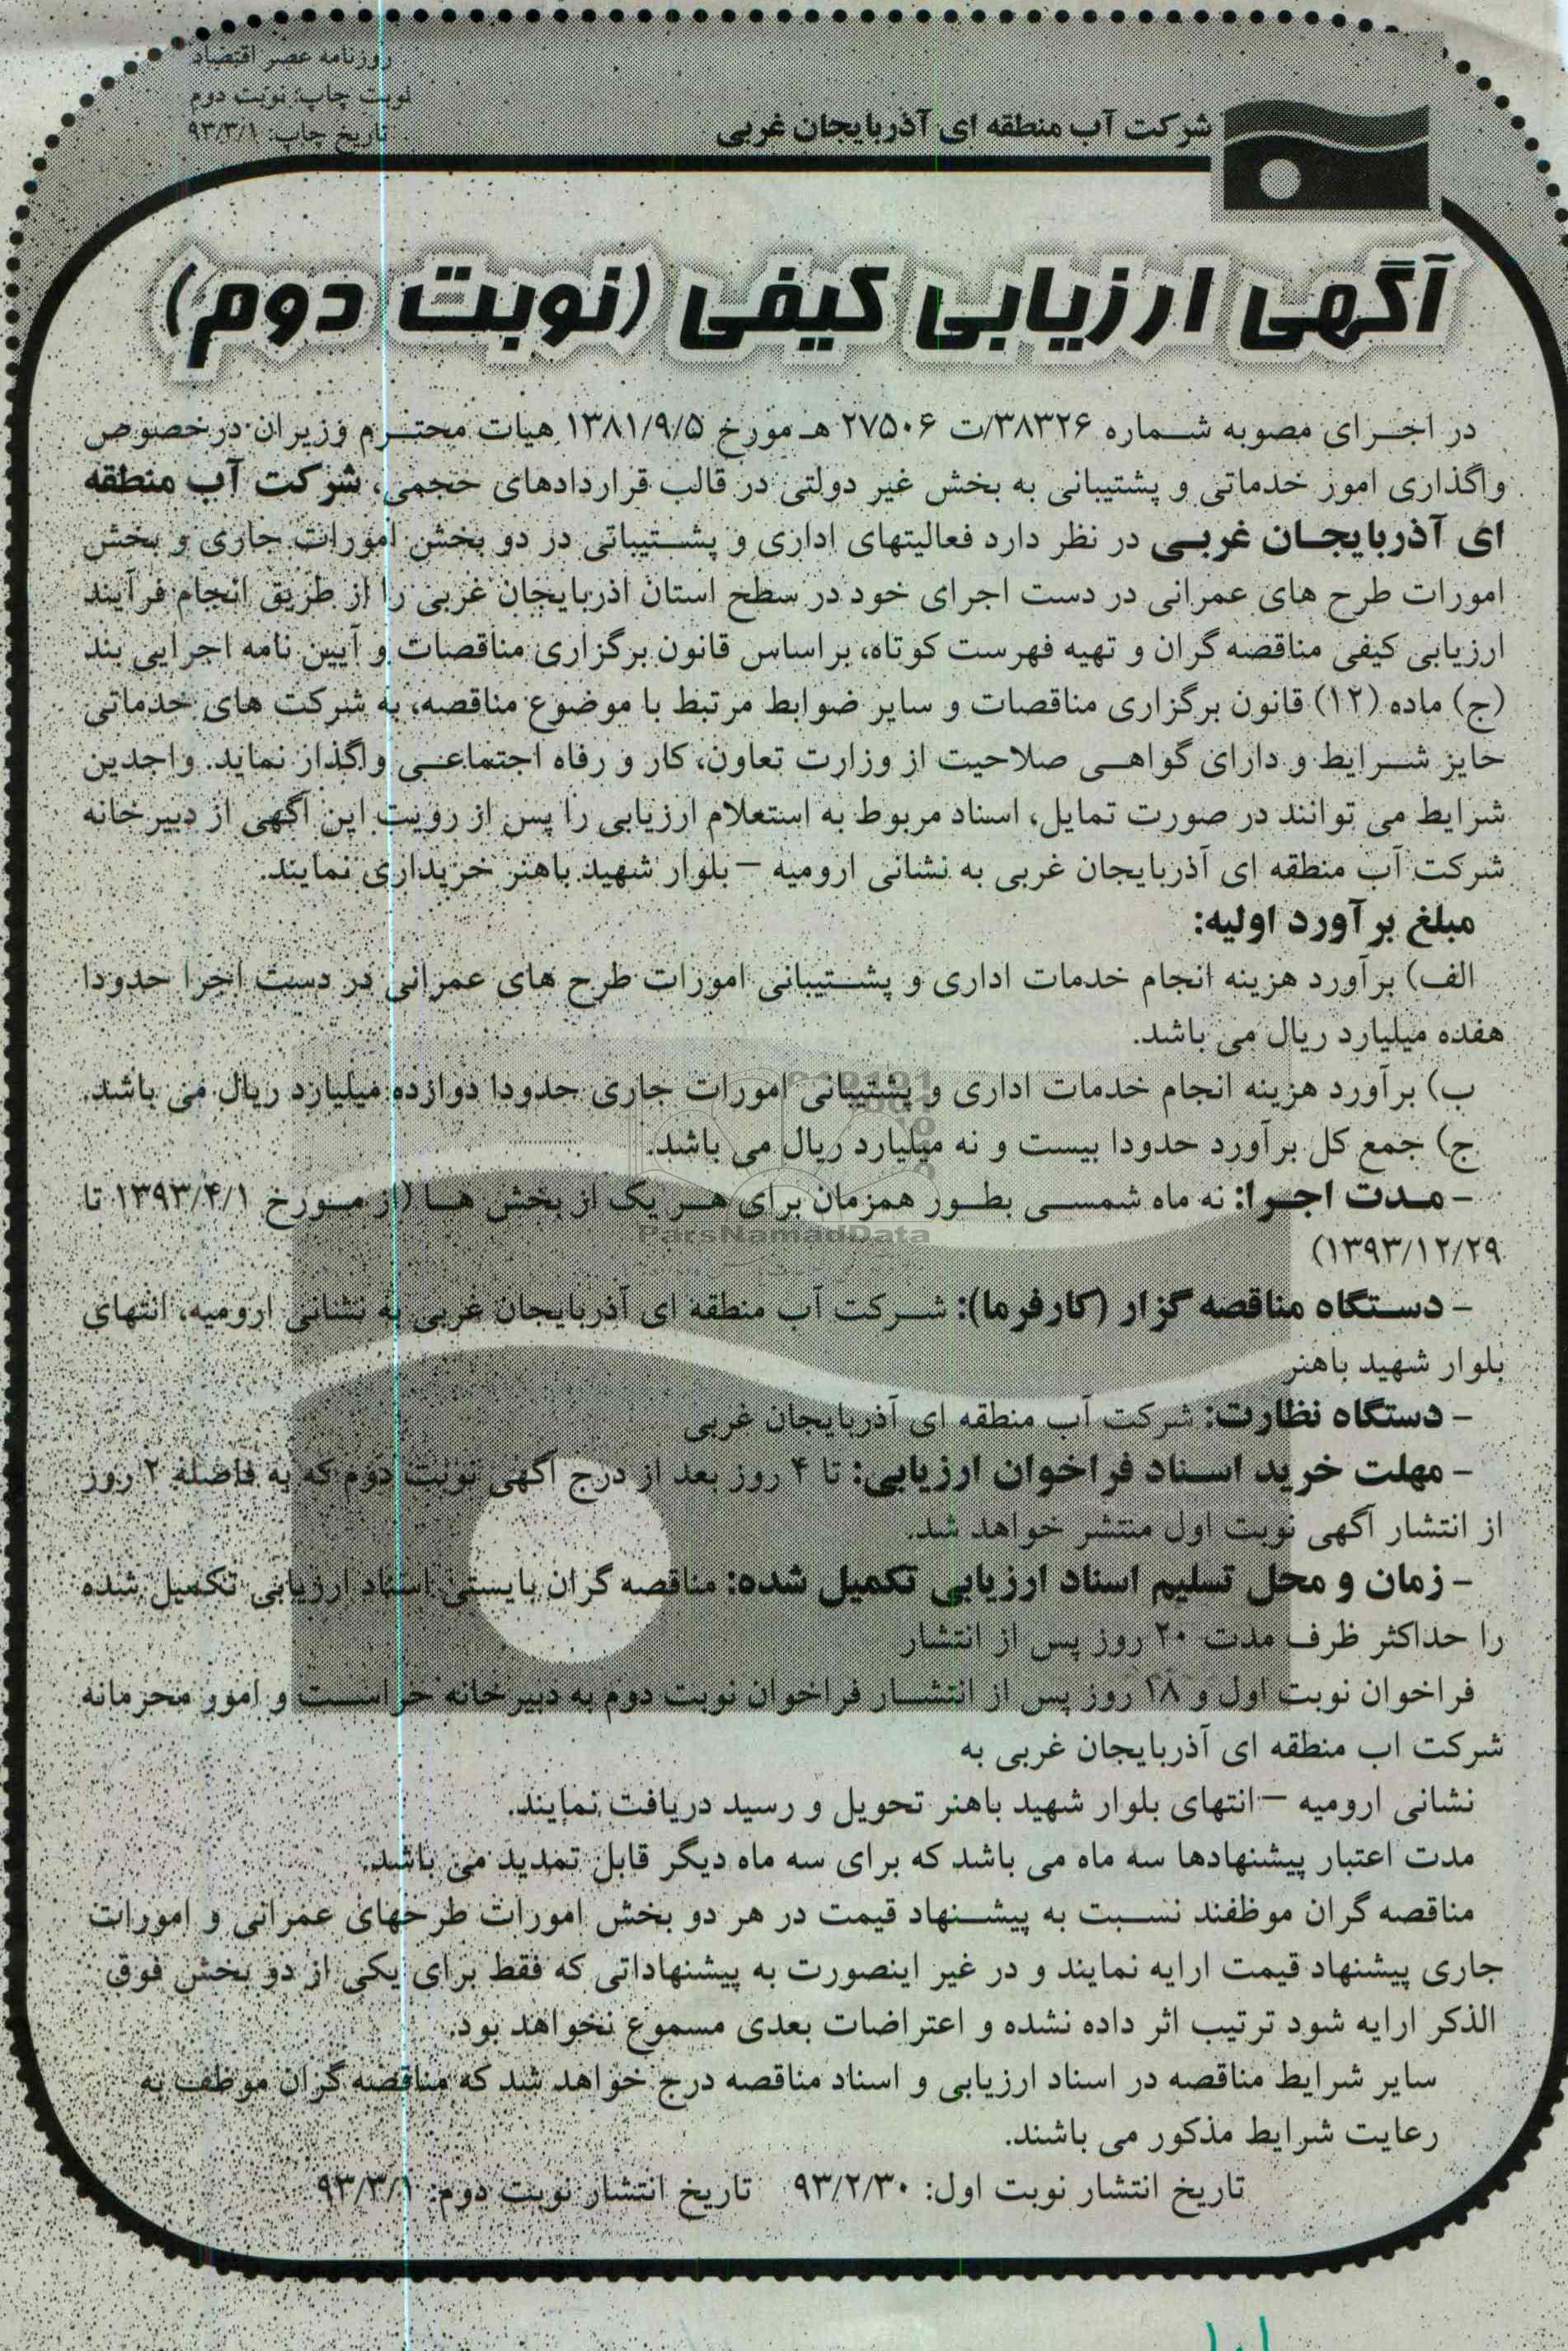 روزنامه عصر اقتصاد
نوبت چاپ: نوبت دوم
تاریخ چاپ: ۹۳/۳/۱
شرکت آب منطقه ای آذربایجان غربی
آگهی ارزیابی کیفی (نوبت دوم)
در اجرای مصوبه شماره ۳۸۳۲۶/ت ۲۷۵۰۶ هـ مورخ ۱۳۸۱/۹/۵ هیات محترم وزیران درخصوص
واگذاری امور خدماتی و پشتیبانی به بخش غیر دولتی در قالب قراردادهای حجمی، شرکت آب منطقه
ای آذربایجان غربی در نظر دارد فعالیتهای اداری و پشتیباتی در دو بخش امورات جاری و بخش
امورات طرح های عمرانی در دست اجرای خود در سطح استان آذربایجان غربی را از طریق انجام فرآیند
ارزیابی کیفی مناقصه گران و تهیه فهرست کوتاه، براساس قانون برگزاری مناقصات و آیین نامه اجرایی بند
(ج) ماده (۱۲) قانون برگزاری مناقصات و سایر ضوابط مرتبط با موضوع مناقصه، به شرکت های خدماتی
حایز شرایط و دارای گواهی صلاحیت از وزارت تعاون، کار و رفاه اجتماعی واگذار نماید. واجدین
شرایط می توانند در صورت تمایل، اسناد مربوط به استعلام ارزیابی را پس از رویت این آگهی از دبیرخانه
شرکت آب منطقه ای آذربایجان غربی به نشانی ارومیه – بلوار شهید باهنر خریداری نمایند.
مبلغ برآورد اولیه:
الف) برآورد هزینه انجام خدمات اداری و پشتیبانی امورات طرح های عمرانی در دست اجرا حدودا
هفده میلیارد ریال می باشد.
ب) برآورد هزینه انجام خدمات اداری و پشتیبانی امورات جاری حدودا دوازده میلیارد ریال می باشد.
ج) جمع کل برآورد حدودا بیست و نه میلیارد ریال می باشد.
- مدت اجرا: نه ماه شمسی بطور همزمان برای هر یک از بخش ها (از مورخ ۱۳۹۳/۴/۱ تا
۱۳۹۳/۱۲/۲۹)
ParsNamadData
- دستگاه مناقصه گزار (کارفرما): شرکت آب منطقه ای آذربایجان غربی به نشانی ارومیه، انتهای
بلوار شهید باهنر
- دستگاه نظارت: شرکت آب منطقه ای آذربایجان غربی
- مهلت خرید اسناد فراخوان ارزیابی: تا ۴ روز بعد از درج آگهی نوبت دوم که به فاصله ۲ روز
از انتشار آگهی نوبت اول منتشر خواهد شد.
- زمان و محل تسلیم اسناد ارزیابی تکمیل شده: مناقصه گران بایستی اسناد ارزیابی تکمیل شده
را حداکثر ظرف مدت ۲۰ روز پس از انتشار
فراخوان نوبت اول و ۱۸ روز پس از انتشار فراخوان نوبت دوم به دبیرخانه حراست و امور محرمانه
شرکت اب منطقه ای آذربایجان غربی به
نشانی ارومیه – انتهای بلوار شهید باهنر تحویل و رسید دریافت نمایند.
مدت اعتبار پیشنهادها سه ماه می باشد که برای سه ماه دیگر قابل تمدید می باشد.
مناقصه گران موظفند نسبت به پیشنهاد قیمت در هر دو بخش امورات طرحهای عمرانی و امورات
جاری پیشنهاد قیمت ارایه نمایند و در غیر اینصورت به پیشنهاداتی که فقط برای یکی از دو بخش فوق
الذکر ارایه شود ترتیب اثر داده نشده و اعتراضات بعدی مسموع نخواهد بود.
سایر شرایط مناقصه در اسناد ارزیابی و اسناد مناقصه درج خواهد شد که مناقصه گران موظف به
رعایت شرایط مذکور می باشند.
تاریخ انتشار نوبت اول: ۹۳/۲/۳۰ تاریخ انتشار نوبت دوم: ۹۳/۳/۱